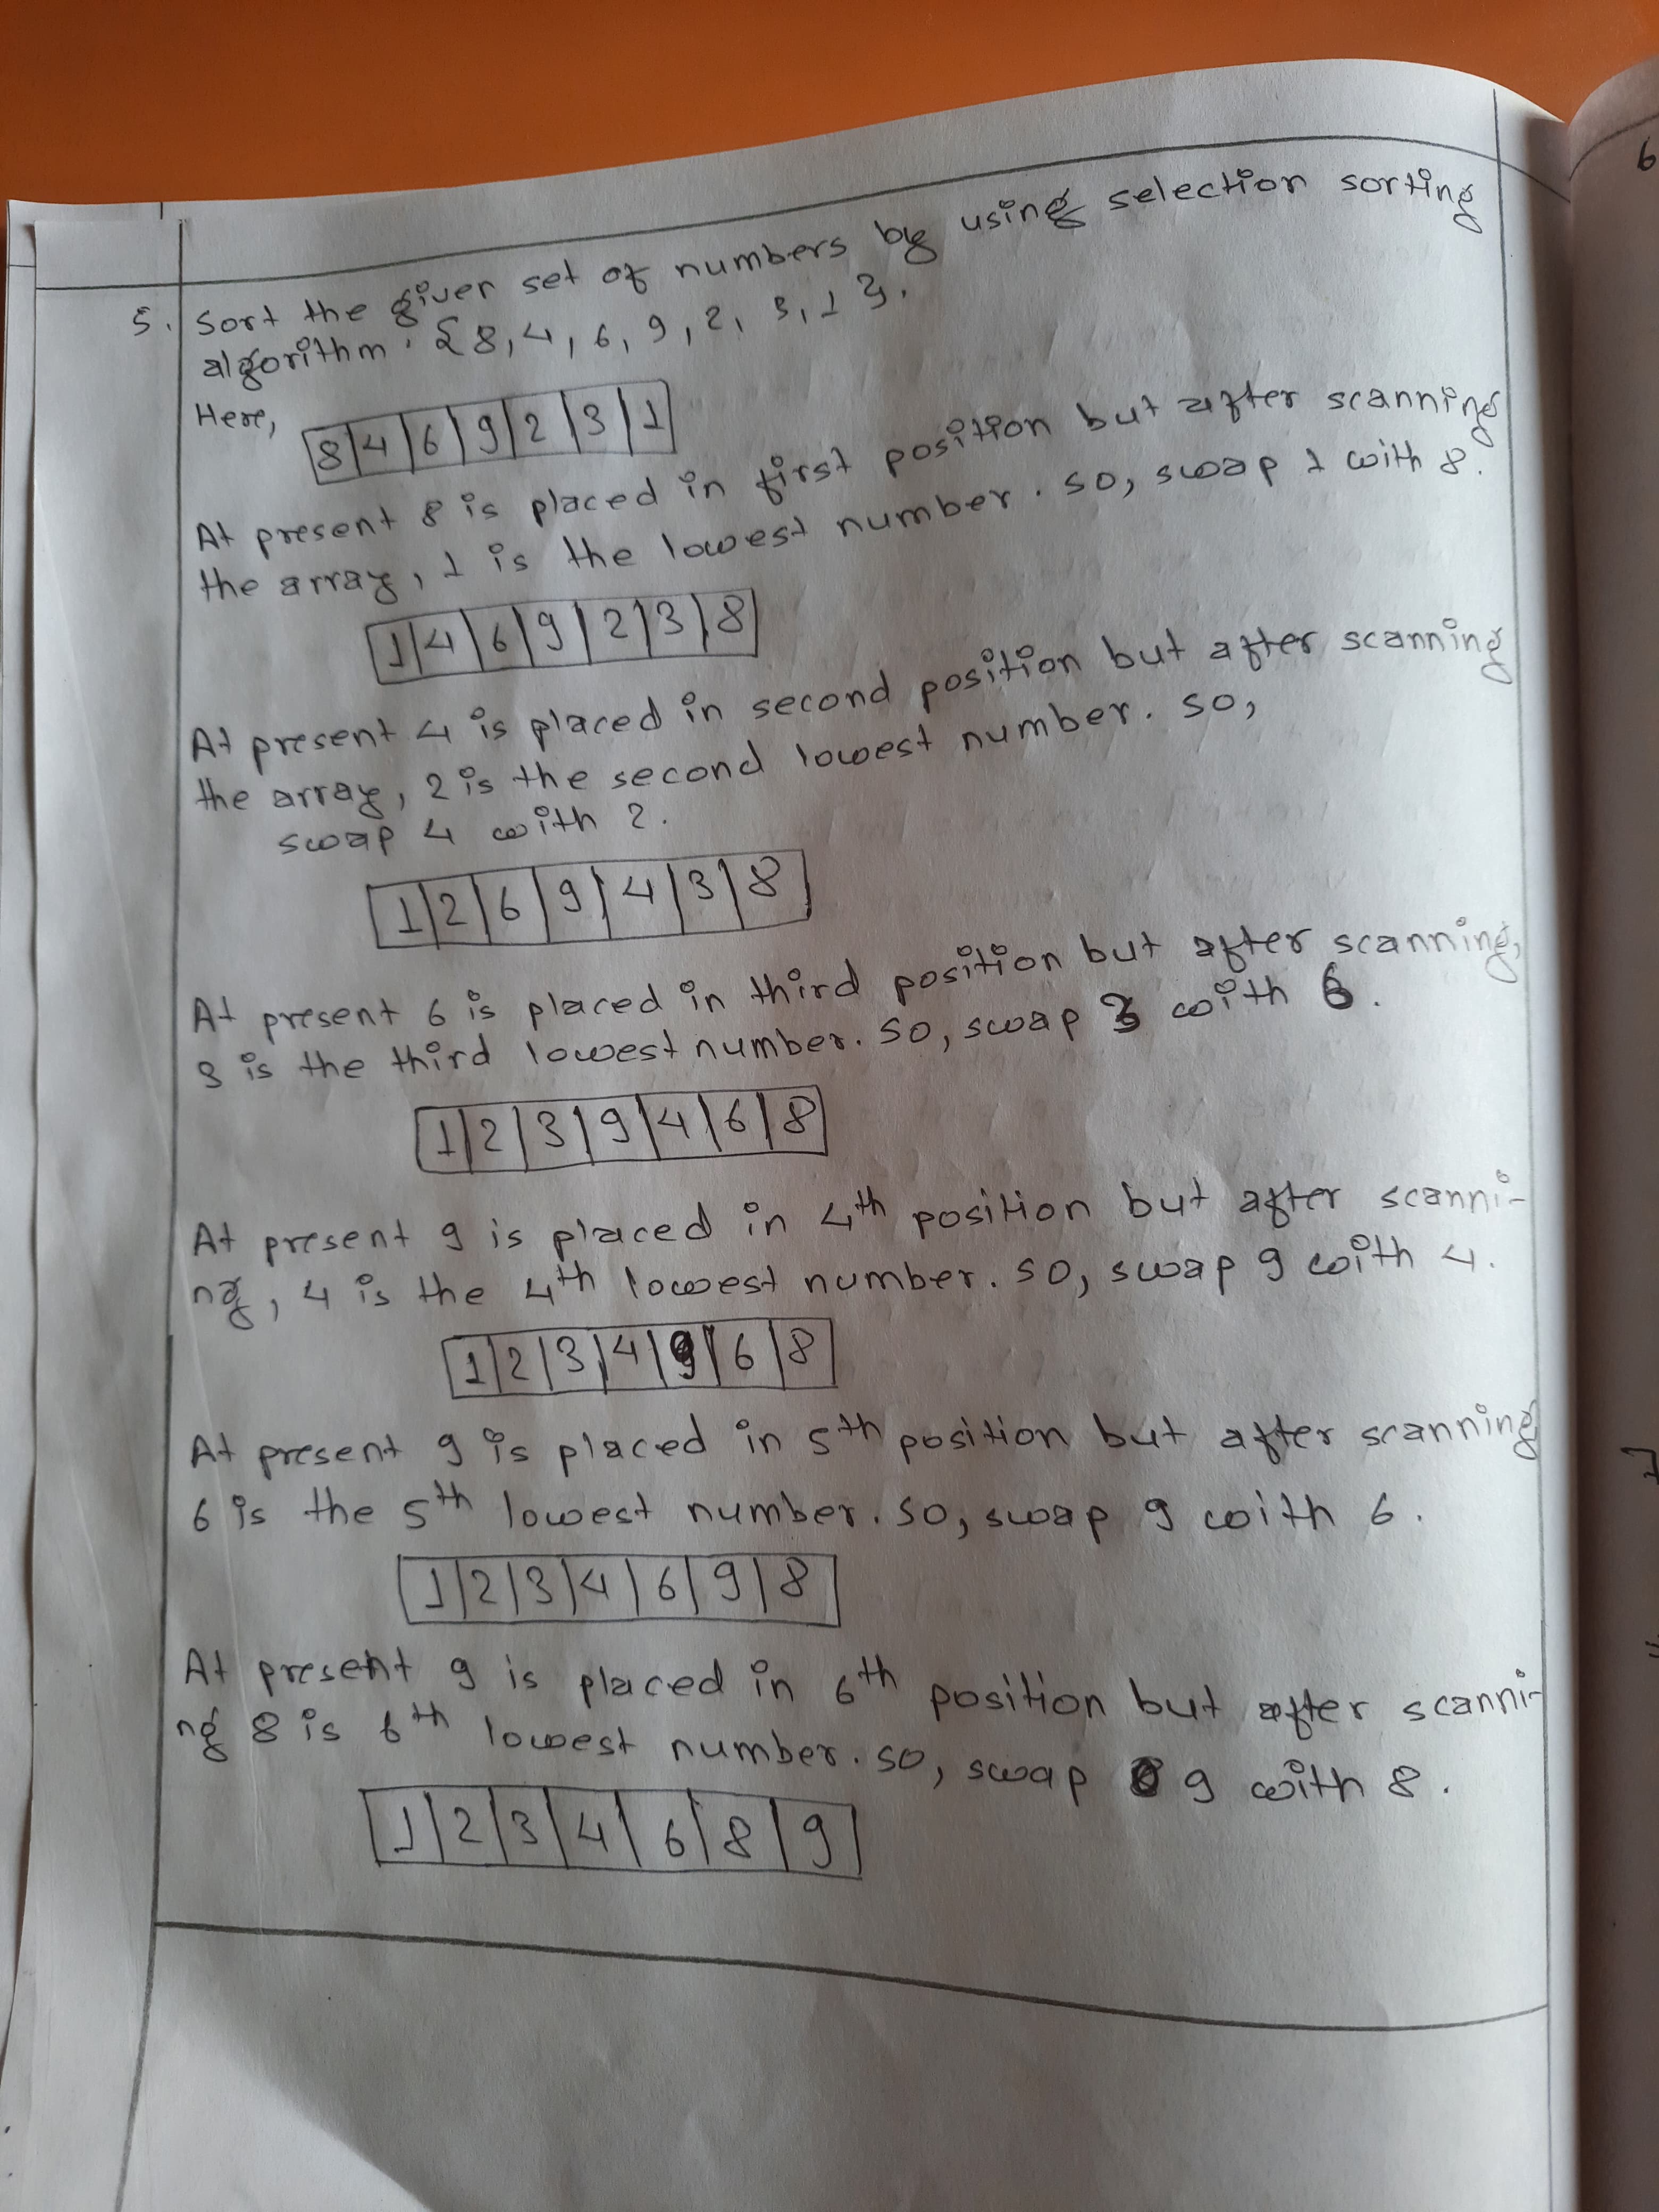 5. Sort the given set of numbers by using selection sorting
algorithm. {8, 4, 6, 9, 2, 3, 1}.
Here,
8 4 6 9 2 3 1
At present 8 is placed in first position but after scanning
the array, 1 is the lowest number. So, swap 1 with 8.
1 4 6 9 2 3 8
At present 4 is placed in second position but after scanning
the array, 2 is the second lowest number. So,
swap 4 with 2.
1 2 6 9 4 3 8
At present 6 is placed in third position but after scanning,
3 is the third lowest number. So, swap 3 with 6.
1 2 3 9 4 6 8
At present 9 is placed in 4th position but after scanni-
ng, 4 is the 4th lowest number. So, swap 9 with 4.
1 2 3 4 9 6 8
At present 9 is placed in 5th position but after scanning
6 is the 5th lowest number. So, swap 9 with 6.
1 2 3 4 6 9 8
At present 9 is placed in 6th position but after scanni-
ng 8 is 6th lowest number. So, swap 9 with 8.
1 2 3 4 6 8 9
6